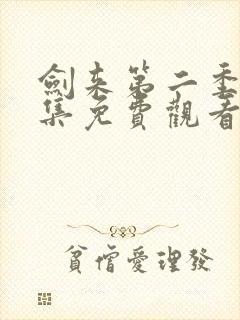 劍来第二季
集免費觀看
貧僧愛理發